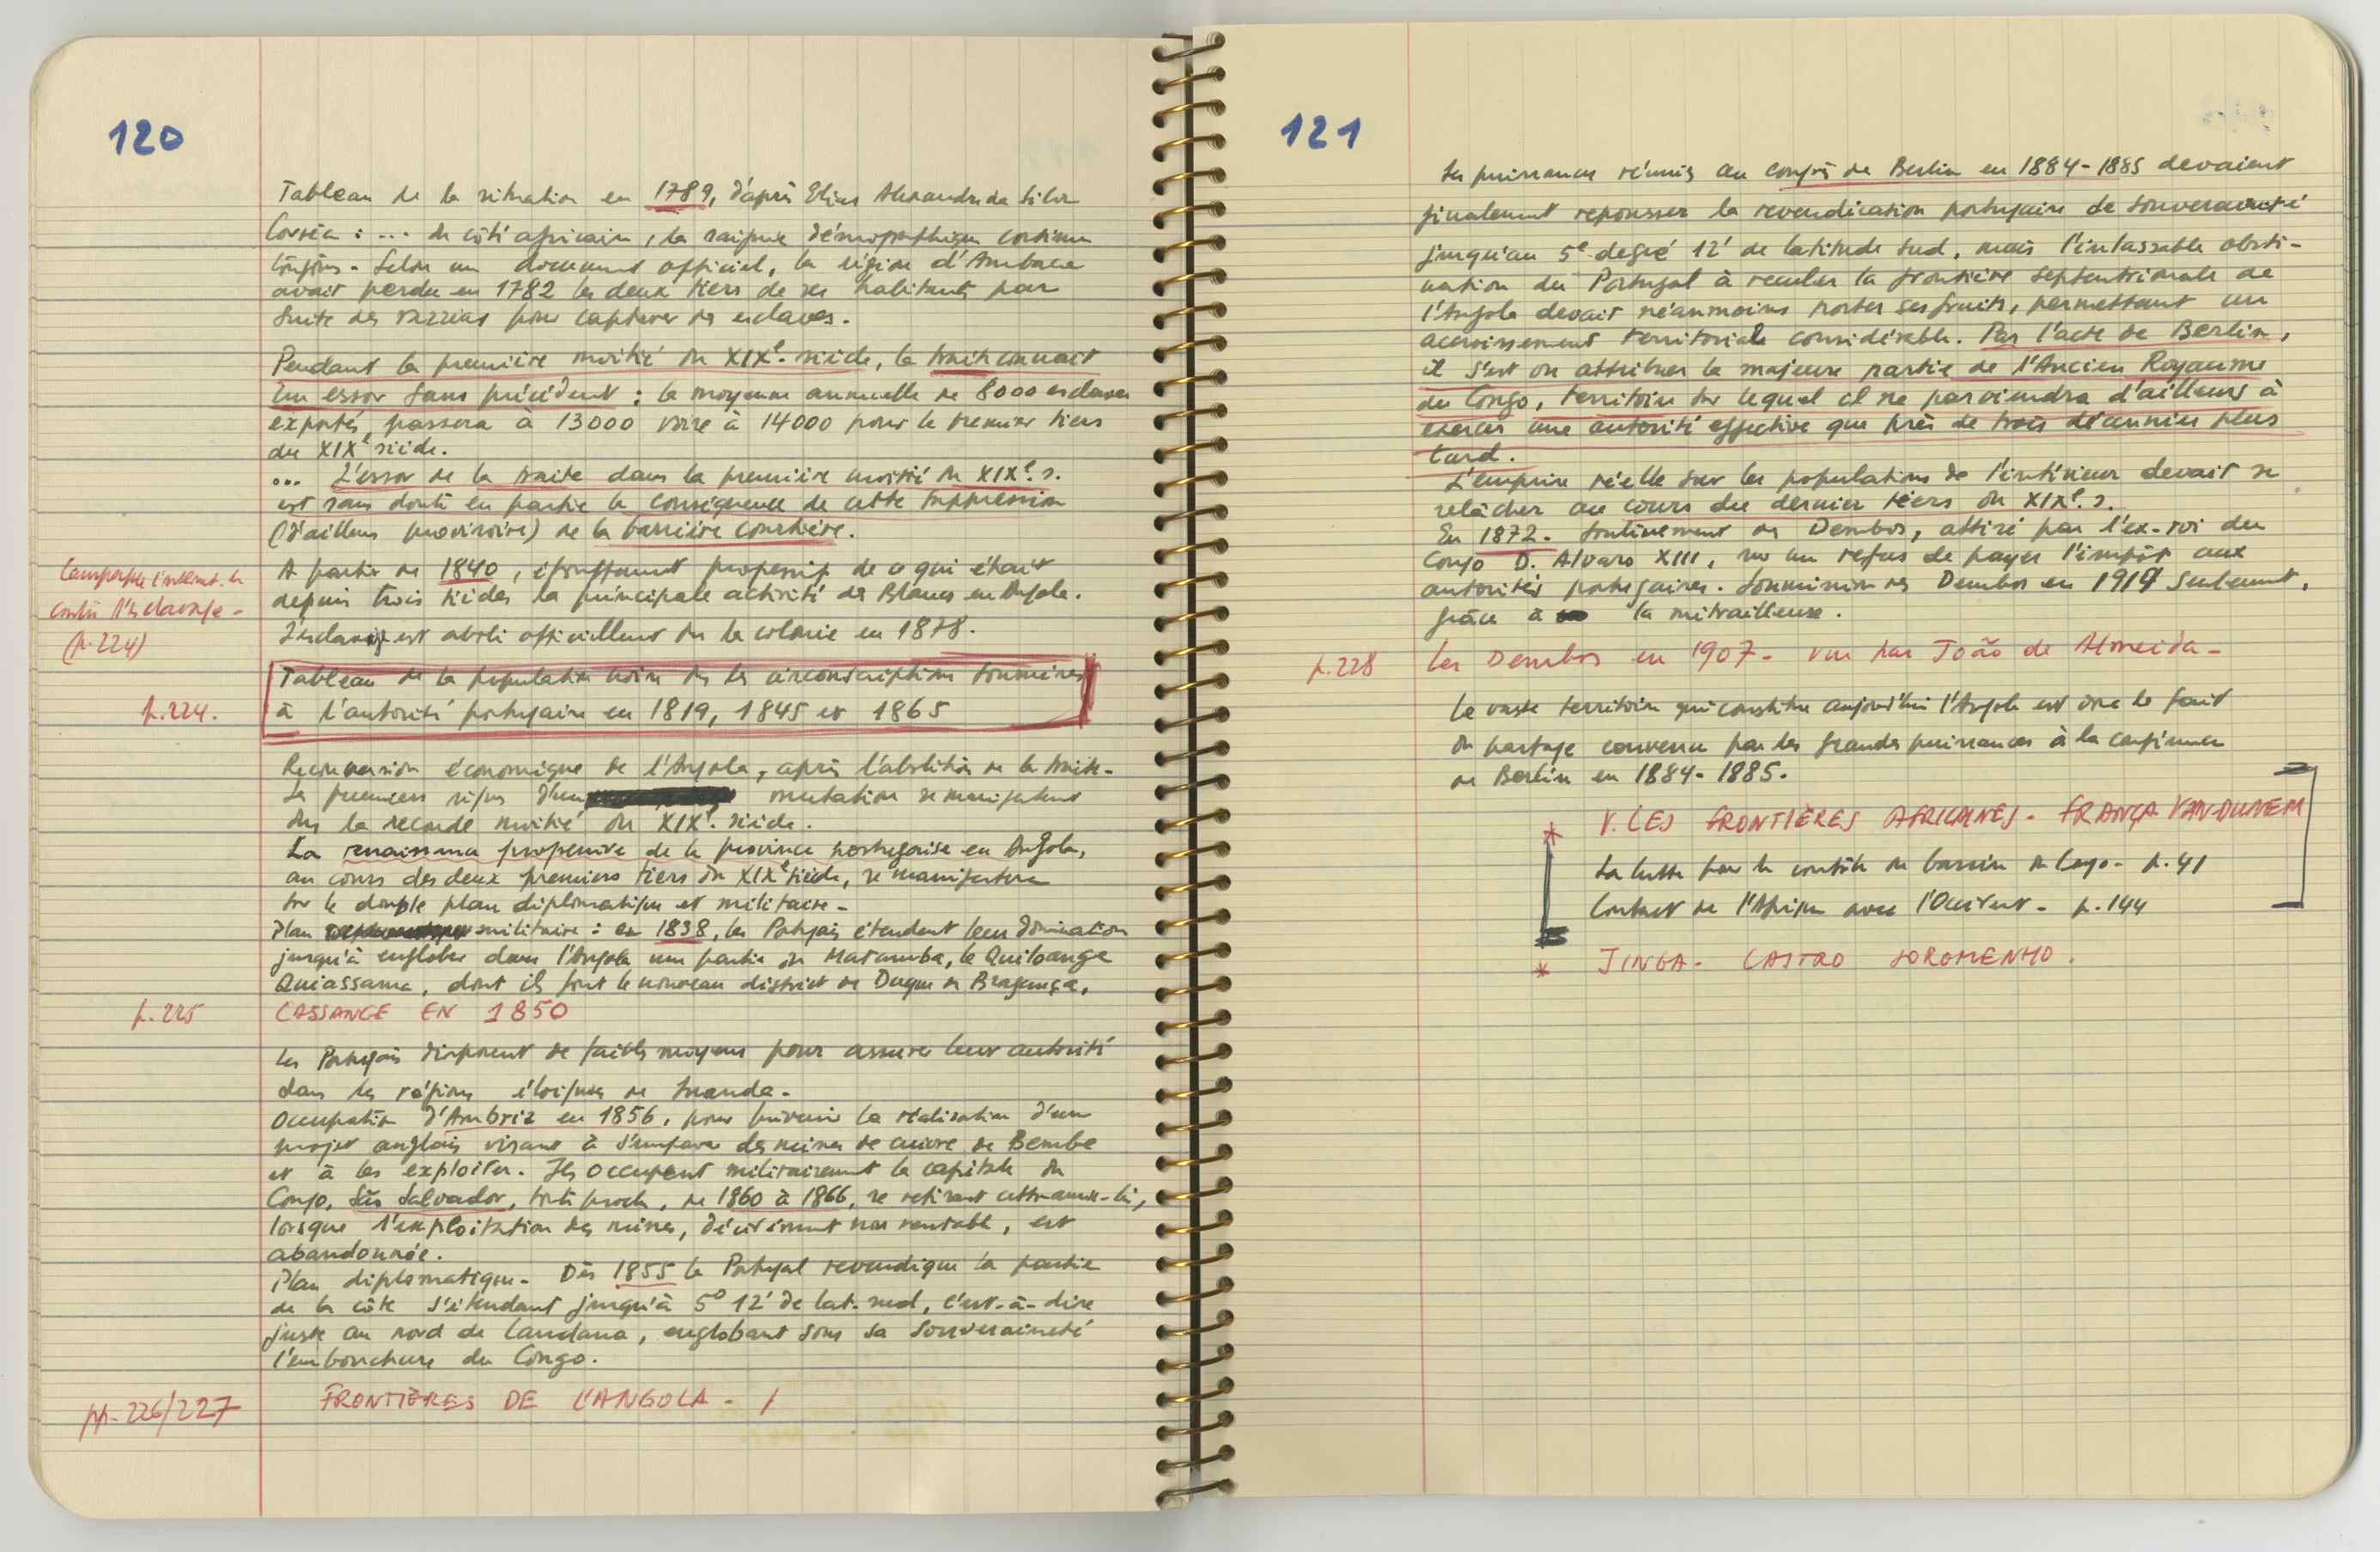 120
Tableau de la situation en 1789, d'après Elias Alexandre da Silva
Corrêa : ... du côté africain, la saignée démographique continue
toujours. Selon un document officiel, la région d'Ambaca
avait perdu en 1782 les deux tiers de ses habitants par
suite des razzias pour capturer des esclaves.
Pendant la première moitié du XIXe. siècle, la traite connait
un essor sans précédent : la moyenne annuelle de 8000 esclaves
exportés, passera à 13000 voire à 14000 pour le premier tiers
du XIXe siècle.
... L'essor de la traite dans la première moitié du XIXe. s.
est sans doute en partie la conséquence de cette suppression
(d'ailleurs provisoire) de la barrière courtière.
contre l'esclavage -
(p. 224)
A partir de 1840, étouffement progressif de ce qui était
depuis trois siècles la principale activité des Blancs en Angola.
L'esclavage est aboli officiellement ds la colonie en 1878.
p. 224.
Tableau de la population noire ds les circonscriptions soumises
à l'autorité portugaise en 1819, 1845 et 1865
Reconversion économique de l'Angola, après l'abolition de la traite.
Les premiers signes d'une mutation se manifestent
ds la seconde moitié du XIXe. siècle.
La renaissance progressive de la province portugaise en Angola,
au cours des deux premiers tiers du XIXe siècle, se manifestera
sur le double plan diplomatique et militaire -
Plan militaire : en 1838, les Portugais étendent leur domination
jusqu'à englober dans l'Angola une partie du Matamba, le Quiloange
Quiassama, dont ils font le nouveau district de Duque de Bragança.
p. 225
CASSANGE EN 1850
Les Portugais disposent de faibles moyens pour assurer leur autorité
dans les régions éloignées de Luanda -
Occupation d'Ambriz en 1856, pour prévenir la réalisation d'un
projet anglais visant à s'emparer des mines de cuivre de Bembe
et à les exploiter. Ils occupent militairement la capitale du
Congo, São Salvador, toute proche, de 1860 à 1866, se retirant cette année-là,
lorsque l'exploitation des mines, décidément non rentable, est
abandonnée.
Plan diplomatique - Dès 1855 le Portugal revendique la partie
de la côte s'étendant jusqu'à 5° 12' de lat. sud, c'est-à-dire
juste au nord de Landana, englobant sous sa souveraineté
l'embouchure du Congo.
pp. 226/227
FRONTIÈRES DE L'ANGOLA - /
121
Les puissances réunies au congrès de Berlin en 1884-1885 devaient
finalement repousser la revendication portugaise de souveraineté
jusqu'au 5e degré 12' de latitude sud, mais l'inlassable obsti-
nation du Portugal à reculer la frontière septentrionale de
l'Angola devait néanmoins porter ses fruits, permettant un
accroissement territorial considérable. Par l'acte de Berlin,
il s'est vu attribuer la majeure partie de l'Ancien Royaume
du Congo, territoire sur lequel il ne parviendra d'ailleurs à
exercer une autorité effective que près de trois décennies plus
tard.
L'emprise réelle sur les populations de l'intérieur devait se
relâcher au cours du dernier tiers du XIXe. s.
En 1872 - soulèvement des Dembos, attisé par l'ex-roi du
Congo D. Alvaro XIII, vu un refus de payer l'impôt aux
autorités portugaises. Soumission des Dembos en 1919 seulement,
grâce à la mitrailleuse.
p. 228
Les Dembos en 1907 - vus par João de Almeida -
Le vaste territoire qui constitue aujourd'hui l'Angola est donc le fait
du partage convenu par les grandes puissances à la conférence
de Berlin en 1884-1885.
* V. LES FRONTIÈRES AFRICAINES - FRANÇA VAN-DUNEM
La lutte pour le contrôle du bassin du Congo - p. 41
Contact de l'Afrique avec l'Occident - p. 144
* JINGA - CASTRO SOROMENHO.